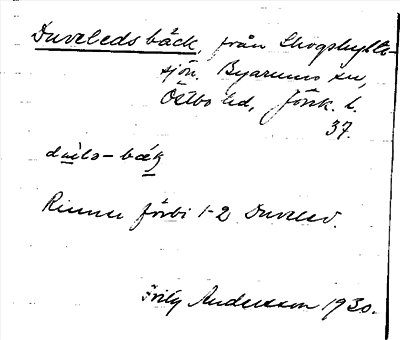 Duveledsbäck, från Skogshylte-
sjön. Byarums sn,
Östbo hd, Jönk. l.
37.
Rinner förbi 1-2 Duveled.
Andersson 1930.